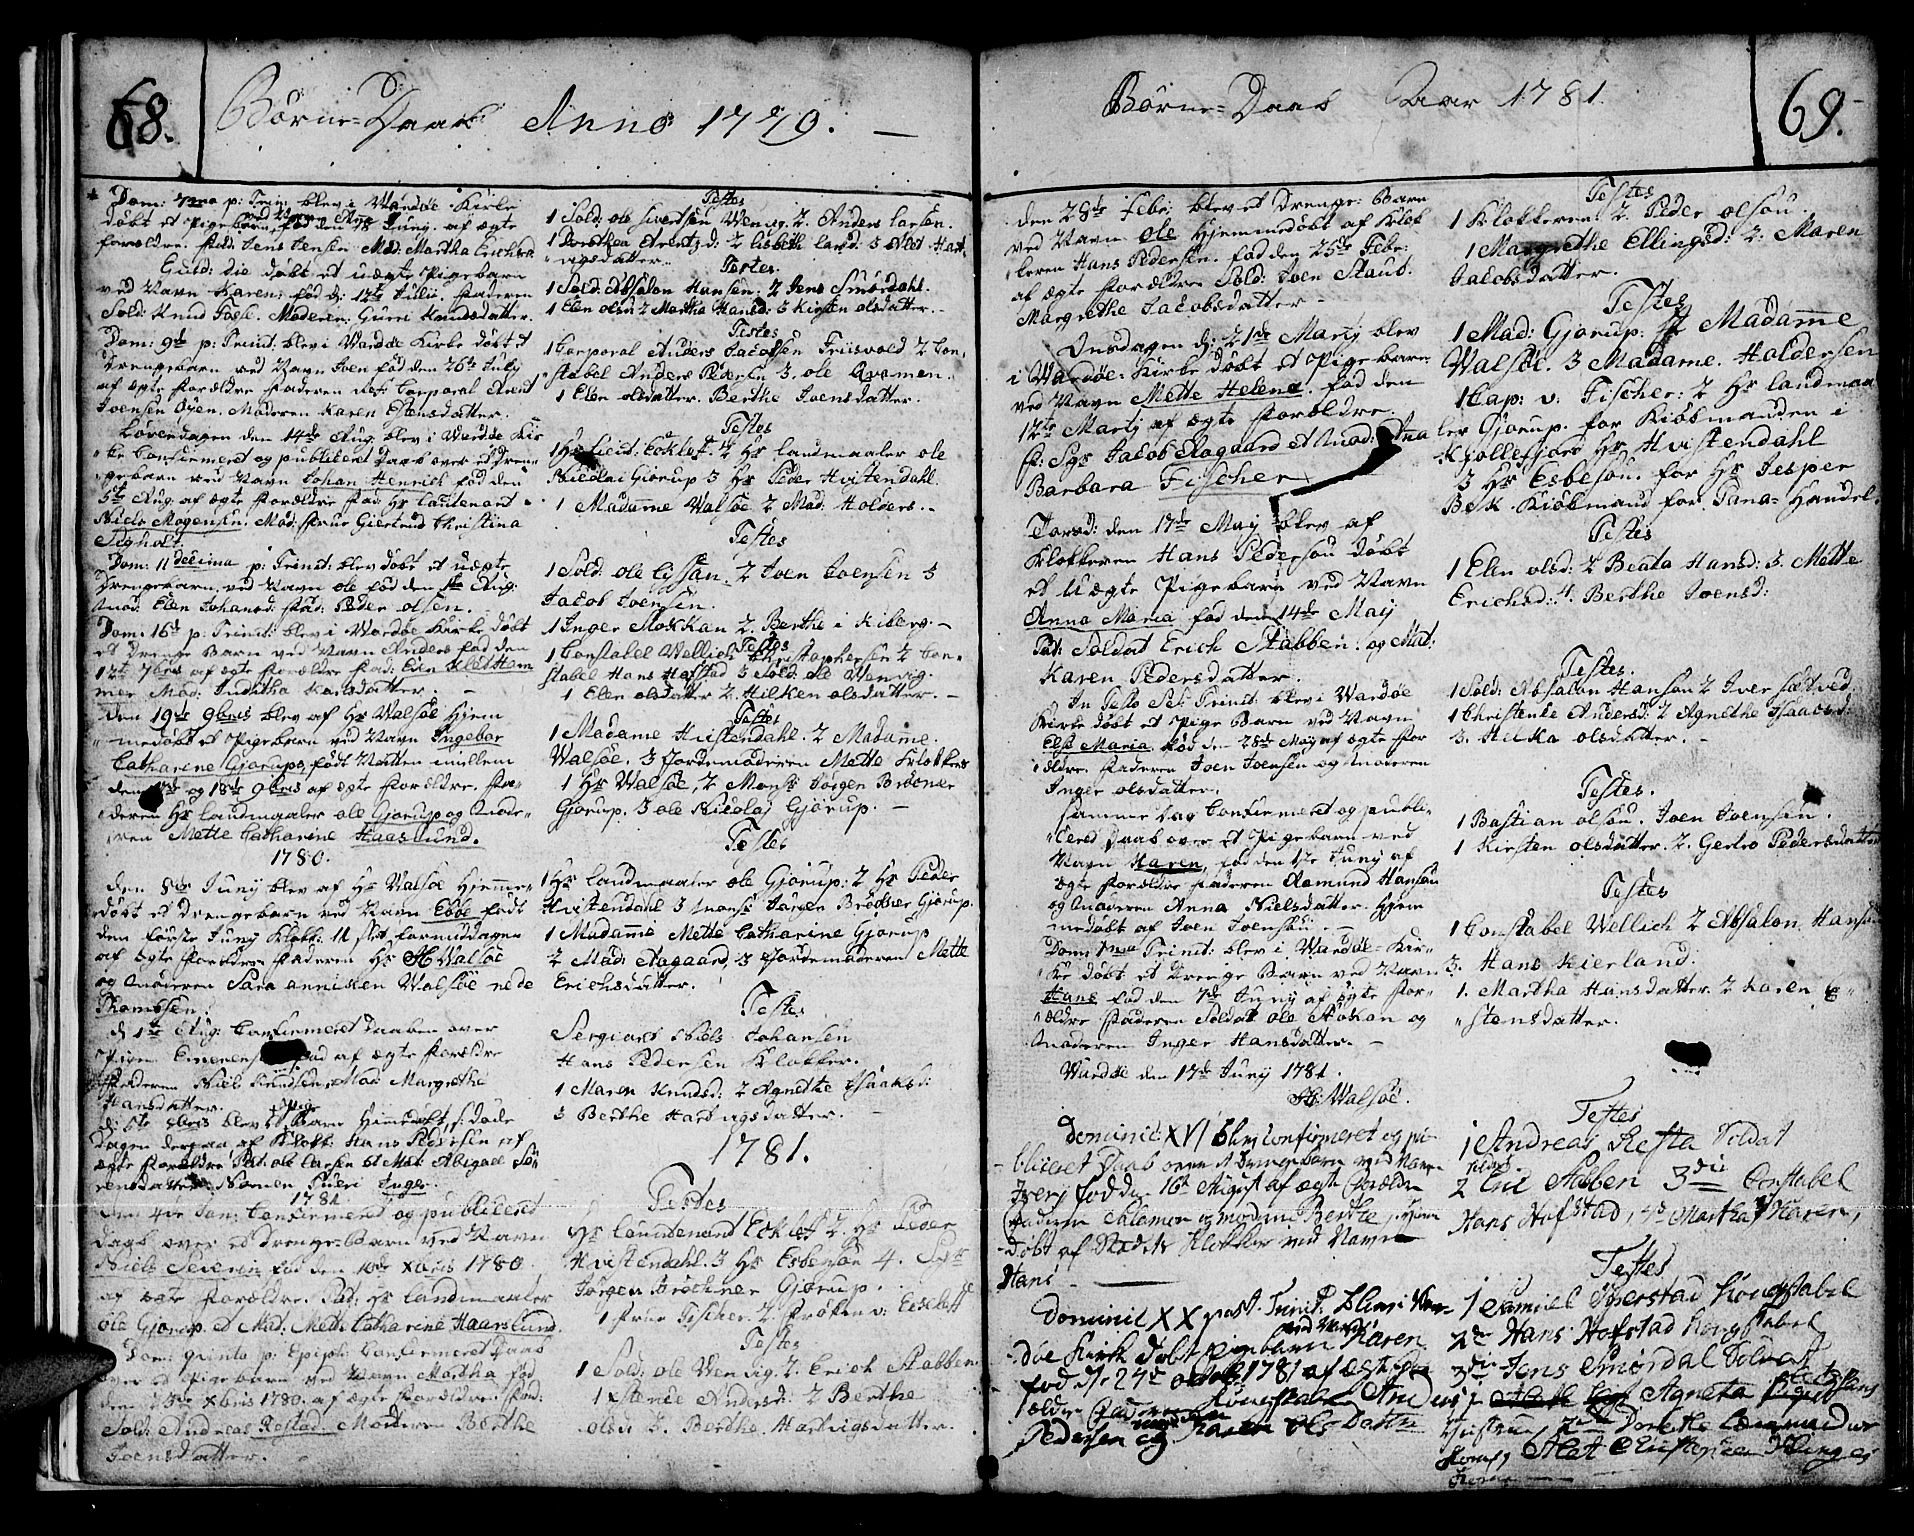 68.
Børne-Daab Anno 1779.
Dom: 7ma p: Trin: blev i Wardøe Kirke
døbt et Pigebarn ved Navn fød den 18 Juny af ægte
forældre. Fad: Jens Jensen Mod: Martha Erichsd.
Eusd: die døbt et uægte Pigebarn
ved Navn Karen: fød d: 12te Julii. Faderen
Sold: Knud Moderen: Guri Knudsdatter.
Dom: 9de p: Trinit: blev i Wardøe Kirke døbt et
Drengebarn ved Navn Joen fød den 26de July
af ægte Forældre Faderen Corporal
Joensen Øyen. Moderen Karen Estensdatter.
Løverdagen den 14de Aug: blev i Wardøe Kir-
ke Confirmeret og publiceret Daab over et Dren-
gebarn ved Navn Johan Henrich fød den
5te Aug: af ægte Forældre Fad: Hr Lautenant
Niels Mogensen. Mod: Frue Giertrud Christina
Sigholt.
Dom: 11 decima p: Trinit: blev døbt et uægte
Drengebarn ved Navn Ole fød den Aug:
Mod: Elen Johansd: Fad: Peder Olsen.
Dom: 16de p: Trinit: blev i Wardøe Kirke døbt
et Drenge Barn ved Navn Anders fød den
12te 7bris af ægte Forældre Fad:
Mod: Inditha Karsdatter.
Den 19de 9bris blev af Hr Walsøe Hjem-
medøbt et Pigebarn ved Navn Ingebor
Catharine Gjørups, født Natten imellem
den 17de og 18de 9bris af ægte Forældre. Fa-
deren Hr Landmaaler Ole Gjørup og Mode-
ren Mette Catharine Haaslund.
1780.
Den 8de Juny blev af Hr Walsøe Hjemme-
døbt et Drengebarn ved Navn Ebbe født
den første Juny Klok: 11 slet formiddagen
af ægte Forældre Faderen Hr H Walsøe
og Moderen Sara Anniken Walsøe nede
Thomesen.
d: 1te Aug: Confirmeret Daaben over
Pigen fød af ægte Forældre
Faderen Niels Knudsen, Mod Margrethe
Hansdatter.
d: 8bris blev et Pige Barn Himedøbt, s: døde
Dagen derpaa, af Klok: Hans Pedersen af
ægte Forældre, Pat: Ole Larsen et Mat: Abigael Sø-
rensdatter Nomen Fueri Inger.
1781
Den 4de Jan: Confirmeret og publiceret
Daab over et Drenge-Barn ved Navn
Niels Severin fød den 10de Xbris 1780.
af ægte Forældre. Pad: Hr Landmaaler
Ole Gjørup et Mad: Mette Catharine Haarslund.
Dom: quinta p: Epiph: Confirmeret Daab
over et Pigebarn ved Navn Martha fød
den 23de Xbris 1780. af ægte Forældre. Fad:
Sold: Andreas Restad. Moderen Berthe
Joensdatter.
Testes
1 Sold: Ole Sivertsen Wenvig. 2. Anders Larsen.
1 Dorothea Arentzd: 2 Lisbeth Larsd: 3 Alet Hart-
vigsdatter.
Testes.
1 Sold: Absalon Hansen: 2 Jens Smördahl.
1 Elen Olsd: 2 Martha Hansd: 3 Kirsten Olsdatter.
Testes
1 Corporal Anders Jacobsen Friisvold 2 Con-
stabel Anders Pedersen 3. Ole Qvamen.
1 Elen Olsdatter. Berthe Joensdatter.
Testes
1 Hr Lieut: Ecklef. 2 Hr Landmaaler Ole
Nicolai Gjørup 3 Hr Peder Hvistendahl.
1 Madamme Walsøe 2 Mad: Holders.
Testes
1 Sold: Ole 2 Joen Joensen 3
Jacob Joensen.
1 Inger Stokkan 2. Berthe i Kiberg.
Testes
1 Constabel Wellich Christophersen 2 Con-
stabel Hans Hofstad 3 Sold: Ole Wenvig.
1 Elen Olsdatter 2 Hilken Olsdatter.
Testes
1 Madame Hvistendahl. 2 Madamme.
Walsøe. 3 Jordemoderen Mette Klokkers
1 Hr Walsøe, 2 Mons: Jørgen Brodner
Gjørup. 3 Ole Nicolaj Gjørup.
Testes
1 Hr Landmaaler Ole Gjørup: 2 Hr Peder
Hvistendahl 3 Mons: Jørgen Brochner Gjørup.
1 Madamme Mette Catharine Gjørup
2 Mad: Aagaard, 3 Jordemoderen Mette
Erichsdatter.
Testes
Sergiant Niels Johansen
Hans Pedersen Klokker.
1 Maren Knudsd: 2 Agnethe Isaaksd:
3 Berthe Hartvigsdatter.
1781.
Testes
Hr Lauidenand Ecklef 2. Hr Peder
Hvistendahl. 3 Hr Esbensøn 4.
Jørgen Brochner Gjørup.
1 Frue Fischer. 2 Frøken v: Eckleff
Testes
1 Sold: Ole Wenvig. 2. Erich Stabben
1 Xstence Andersd: 2 Berthe
Olsd: 3. Berthe Hartvigsdatter.
Børne-Daab Aar 1781.
69.
Den 28de Febr: blev et Drenge: Barn
ved Navn Ole Hjemmedøbt af Klok-
keren Hans Pedersen. fød den 25de Febr:
af ægte Forældre Sold: Joen Staut.
Margrethe Jacobsdatter
Onsdagen d: 21de Martj blev
i Wardøe-Kirke døbt et Pigebarn
ved Navn Mette Helena. fød den
12te Martj af ægte Forældre.
F: Sgr Jacob Aagaard et Mad: Ana
Barbara Fischer
Torsd: den 17de May blev af
Klokkeren Hans Pedersøn døbt
et Uægte Pigebarn ved Navn
Anna Maria fød den 14de Maij
Pat: Soldat Erich Stabben. og Mat:
Karen Pedersdatter.
In Festo Trinit: blev i Wardøe
Kirke døbt et Pige Barn ved Navn
Else Maria fød den 28de Maj af ægte For-
ældre. Faderen Joen Joensen og Moderen
Inger Olsdatter.
Samme Dag Confirmeret og publi-
ceret Daab over et Pigebarn ved
Navn Karen, fød den 1te Juny af
ægte Forældre Faderen Aamund Hansøn
og Moderen Anna Nielsdatter. Hjem-
medøbt af Joen Joensøn.
Dom: 1ma Trinit: blev i Wardøe-Kir-
ke døbt et Drenge Barn ved Navn
Hans fød den 7de Juny af ægte For-
ældre Faderen Soldat Ole Stokan og
Moderen Inger Hansdatter.
Wardøe den 17de Juny 1781.
H: Walsøe.
Dominic XVI blev Confirmeret og pu-
bliceret Daab over et Drengebarn ved Navn
Iver fød den 16de August af ægte Forældre
Faderen Salamon og moderen Berthe, Hjem
døbt af Stedets Klokker ved Navn
Hans
Dominic XX post. Trinit. blev i War-
døe Kirk døbt Pigebarn ved Navn Karen
fød d: 27de 1781 af ægte
Forældre Faderen Constabel Anders
Pedersen og moderen Karen Ols Datter
Testes
1 Klokkeren 2. Peder Olsøn.
1 Margrethe Ellingsd: 2. Maren
Jacobsdatter.
Testes
1 Mad: Gjørup: 2 Madamme
Walsøe. 3 Madame. Holdersen
1 Cap: v: Fischer: 2 Hr Landmaa-
ler Gjørup. for Kiøbmanden i
Kjøllefjord Hr Hvistendahl
3 Hr Esbesøn. for Hr Jesper
Beck. Kiøbmand for Tana-Handel.
Testes
1 Elen Olsd: 2 Beata Hansd: 3. Mette
Erichsd: 4. Berthe Joensd:
Testes.
1 Sold: Absalon Hansøn 2 Iver Sætved
1 Christenke Andersd: 2 Agnethe Isaacsd:
3. Hilka Olsdatter.
Testes.
1 Bastian Olsøn. Joen Joensen.
1 Kirsten Olsdatter. 2. Gertro Pedersdatter
Testes
1 Constabel Wellich 2 Absalon Hansøn
3. Hans Kierland.
1. Martha Hansdatter 2 Karen E-
stensdatter.
Testes
1 Andreas Resta Soldat
2 Eric Stabben 3die Constabel
Hans Hofstad, Martha Karen,
Testes
1 Samuel Constabel
2de Hans Hofstad Constabel
3die Jens Smørdal Soldat
Agneta
Hustrue, 2den Dorethe
Alet